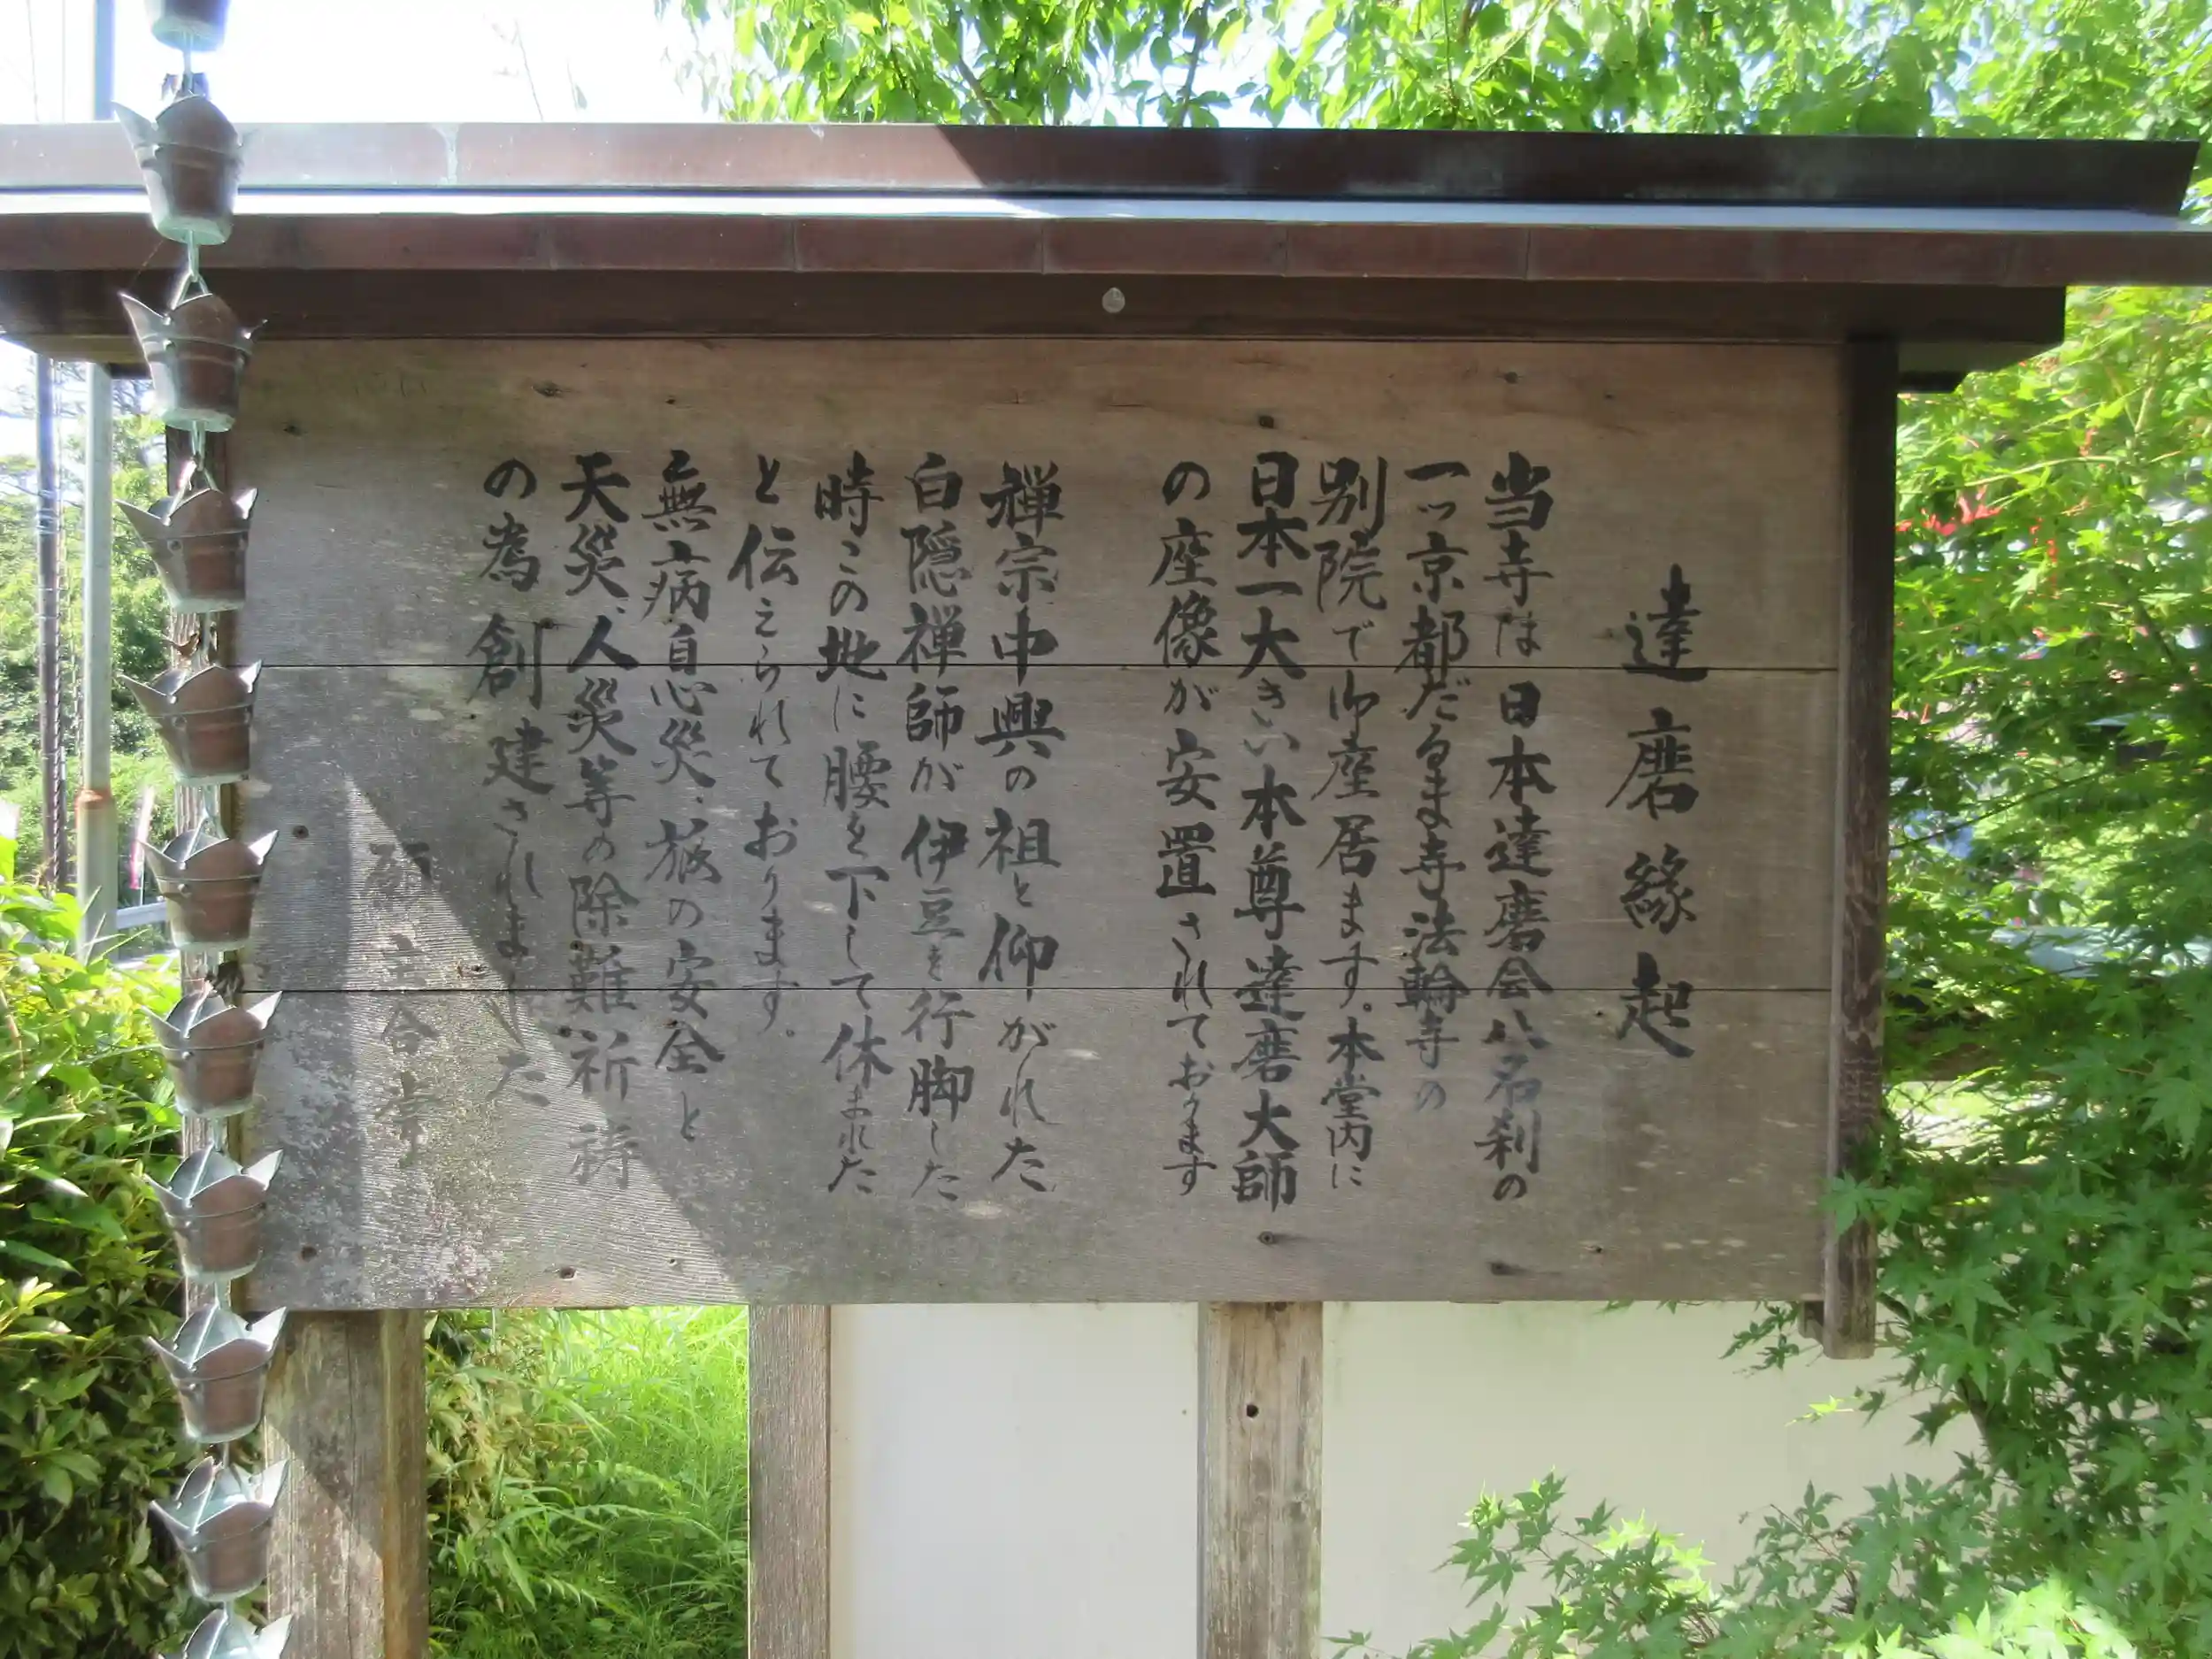 達磨縁起
当寺は日本達磨会八名刹の
一ッ京都だるま寺法輪寺の
別院で御座居ます。本堂内に
日本一大きい本尊達磨大師
の座像が安置されております
禅宗中興の祖と仰がれた
白隠禅師が伊豆を行脚した
時この地に腰を下して休まれた
と伝えられております。
無病息災、旅の安全と
天災、人災等の除難祈祷
の為創建されました
願主合掌